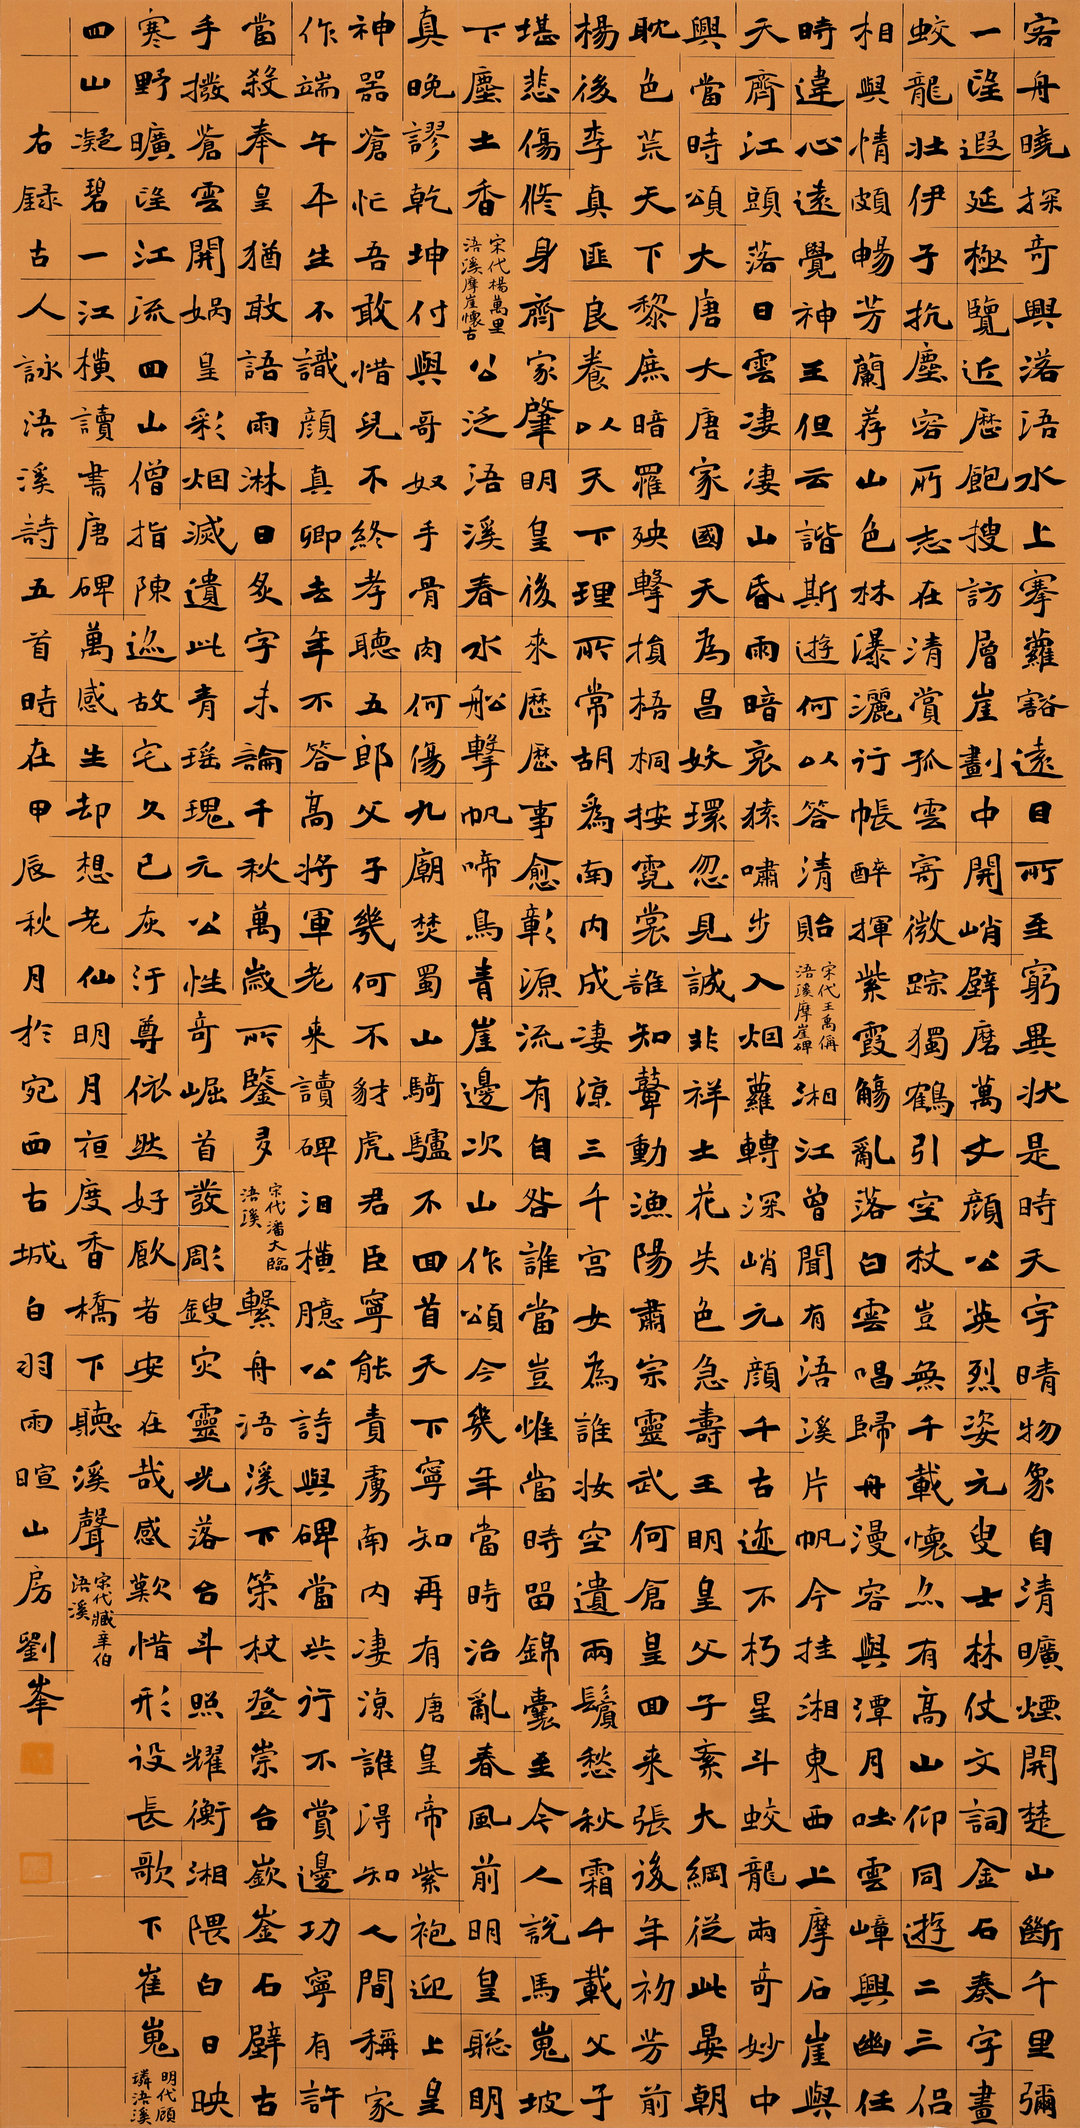 客舟曉探奇興落浯水上搴蘿豁遠目所至窮異狀是時天宇晴物象自清曠煙開楚山斷千里彌
一望遐延極覽近歷飽搜訪層崖劃中開峭壁磨萬丈顏公英烈姿元叟士林仗文詞金石奏字畫
蛟龍壯伊予抗塵容所志在清賞孤雲寄微踪獨鶴引空杖豈無千載懷亦有高山仰同遊二三侶
相與情頗暢芳蘭荐山色林瀑灑行帳醉揮紫霞觴亂落白雲唱歸舟漫容與潭月吐雲嶂興幽任
時違心遠覺神王但云諧斯遊何以答清貽
宋代王禹偁
浯溪摩崖碑
湘江曾聞有浯溪片帆今挂湘東西上摩石崖與
天齊江頭落日雲凄凄山昏雨暗哀猿嘯步入烟蘿轉深峭元顏千古迹不朽星斗蛟龍兩奇妙中
興當時頌大唐大唐家國天為昌妖環忽見誠非祥土花失色急壽王明皇父子紊大綱從此晏朝
耽色荒天下黎庶暗罹殃擊損梧桐按霓裳誰知鼙動漁陽肅宗靈武何倉皇回来張後年初芳前
楊後李真匪良養以天下理所常胡爲南内成凄涼三千宮女為誰妝空遺兩鬢愁秋霜千載父子
堪悲傷修身齊家肇明皇後來歷歷事愈彰源流有自咎誰當豈惟當時留錦囊至今人說馬嵬坡
下塵土香
宋代楊萬里
浯溪摩崖懷古
公泛浯溪春水船擊帆啼鳥青崖邊次山作頌今幾年當時治亂春風前明皇聰明
真晚謬乾坤付與哥奴手骨肉何傷九廟焚蜀山騎驢不回首天下寧知再有唐皇帝紫袍迎上皇
神器倉忙吾敢惜兒不終孝聽五郎父子幾何不豺虎君臣寧能責虜南内凄涼誰得知人間稱家
作端午平生不識顏真卿去年不答高將軍老来讀碑泪橫臆公詩與碑當共行不賞邊功寧有許
當殺奉皇猶敢語雨淋日炙字未論千秋萬歲所鑒多
宋代潘大臨
浯溪
繫舟浯溪下策杖登崇台嶔崟石壁古
手撥蒼雲開娲皇彩烟滅遺此青瑶瑰元公性奇崛首發彫鎪灾靈光落台斗照耀衡湘隈白日映
寒野曠望江流四山僧指陳迹故宅久已灰汙尊依然好飲者安在哉感歎惜形设長歌下崔嵬
明代顧
璘浯溪
四山凝碧一江橫讀書唐碑萬感生却想老仙明月亱度香橋下聽溪聲
宋代臧辛伯
浯溪
右録古人詠浯溪詩五首時在甲辰秋月於宛西古城白羽雨暄山房劉峯